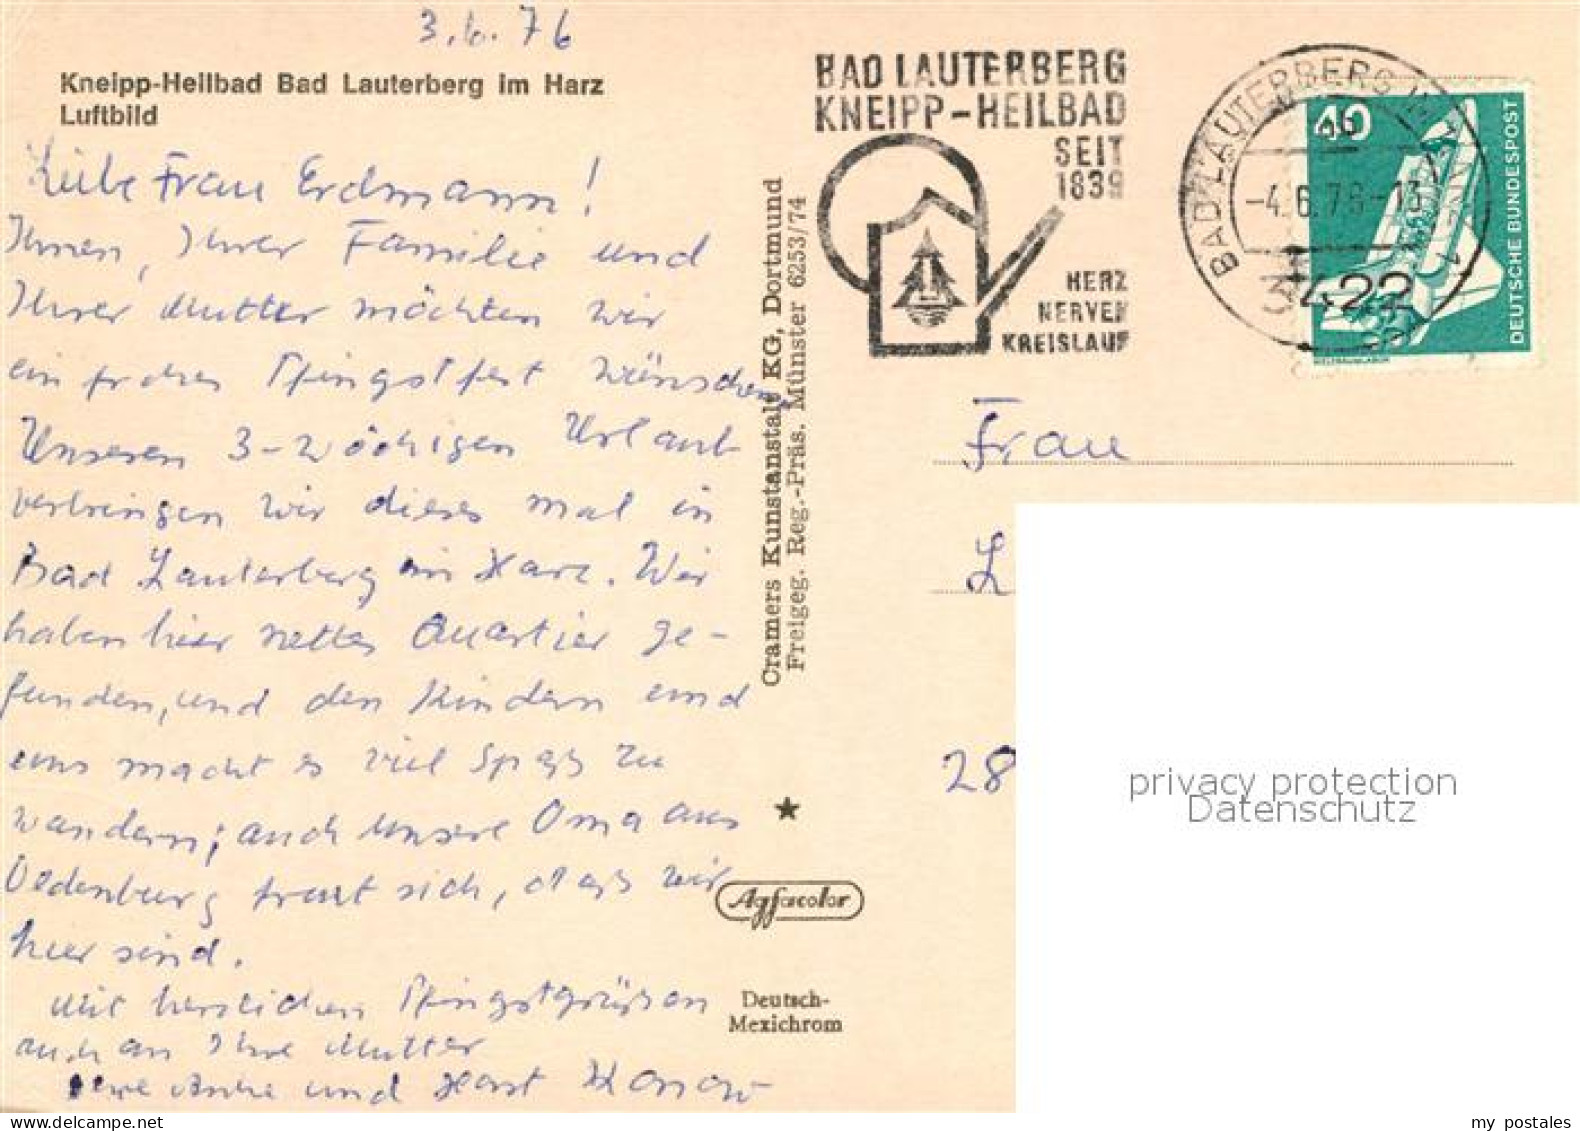 3.6.76
Kneipp-Heilbad Bad Lauterberg im Harz
Luftbild
Liebe Frau Erdmann!
Ihnen, Ihrer Familie und
Ihrer Mutter möchten wir
ein frohes Pfingstfest wünschen.
Unseren 3-wöchigen Urlaub
verbringen wir dieses mal in
Bad Lauterberg im Harz. Wir
haben hier nettes Quartier ge-
funden, und den Kindern und
uns macht es viel Spaß zu
wandern; auch unsere Oma aus
Oldenburg freut sich, daß wir
hier sind.
Mit herzlichen Pfingstgrüßen
auch an Ihre Mutter
Ihre Anke und Horst
Cramers Kunstanstalt KG, Dortmund
Freigeg. Reg.-Präs. Münster 6253/74
Agfacolor
Deutsch-
Mexichrom
BAD LAUTERBERG
KNEIPP-HEILBAD
SEIT
1839
HERZ
NERVEN
KREISLAUF
BAD LAUTERBERG IM HARZ 1
-4.6.76-13
3422
40
DEUTSCHE BUNDESPOST
WELTRAUMLABOR
Frau
L
28
privacy protection
Datenschutz
my postales